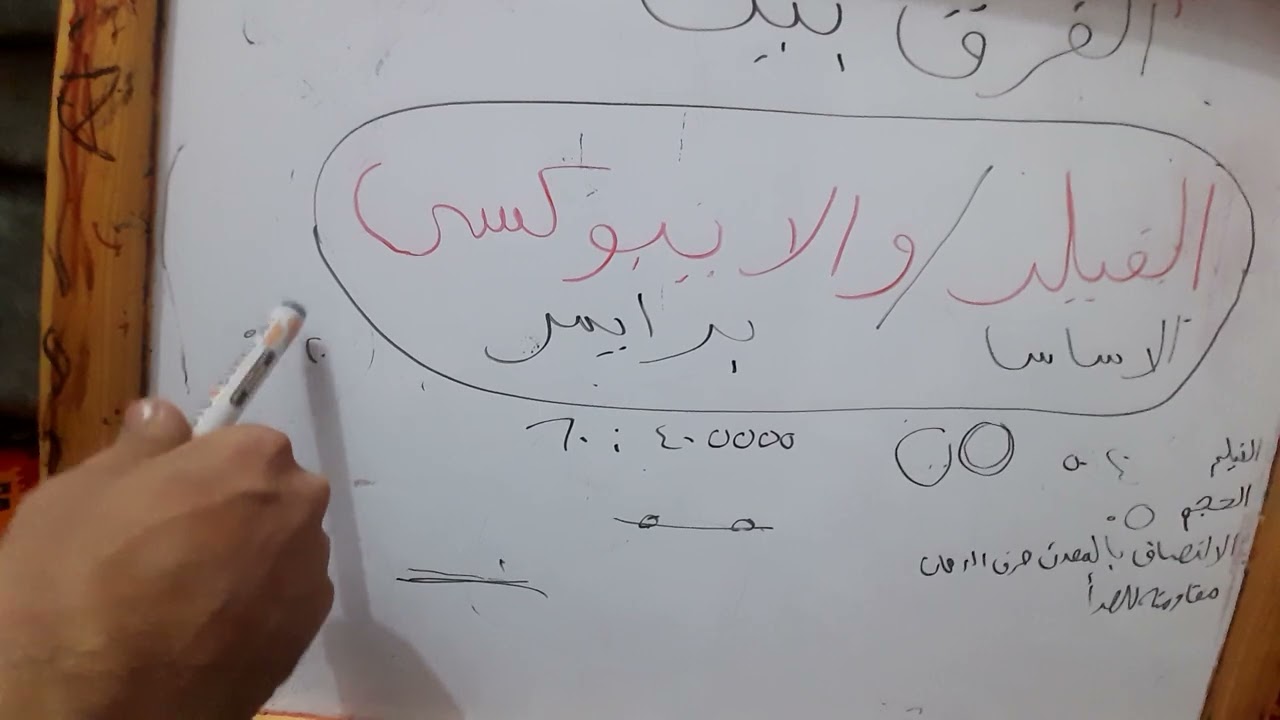 الفرق بين
الفيلر / والايبوكسى
الاساسا برايمر
٤٠٥٥٥٥ : ٦٠
الفيلم ٤٠ ٥
الحجم ٥٠
الالتصاق بالمعدن
مقاومة للصدأ